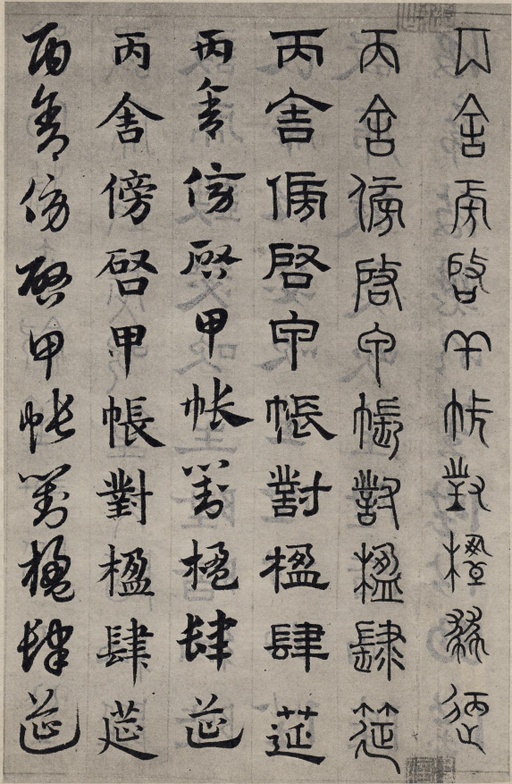 丙舍傍啓甲帳對楹肆筵
丙舍傍啓甲帳對楹肆筵
丙舍傍啓甲帳對楹肆筵
丙舍傍啓甲帳對楹肆筵
丙舍傍啓甲帳對楹肆筵
丙舍傍啓甲帳對楹肆筵